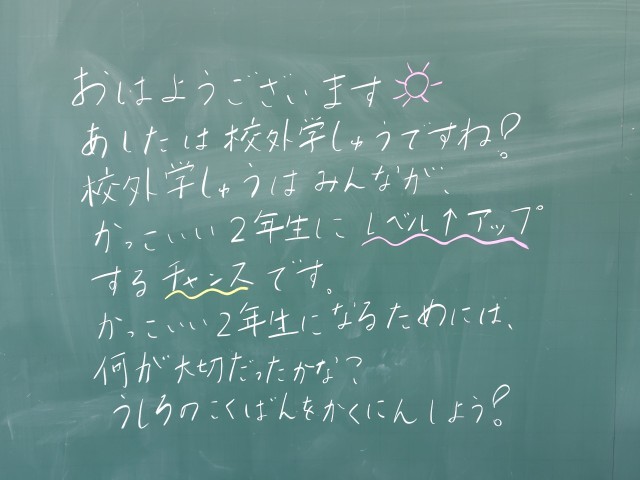 おはようございます
あしたは校外学しゅうですね!
校外学しゅうはみんなが、
かっこいい2年生にレベル↑アップ
するチャンスです。
かっこいい2年生になるためには、
何が大切だったかな?
うしろのこくばんをかくにんしよう!